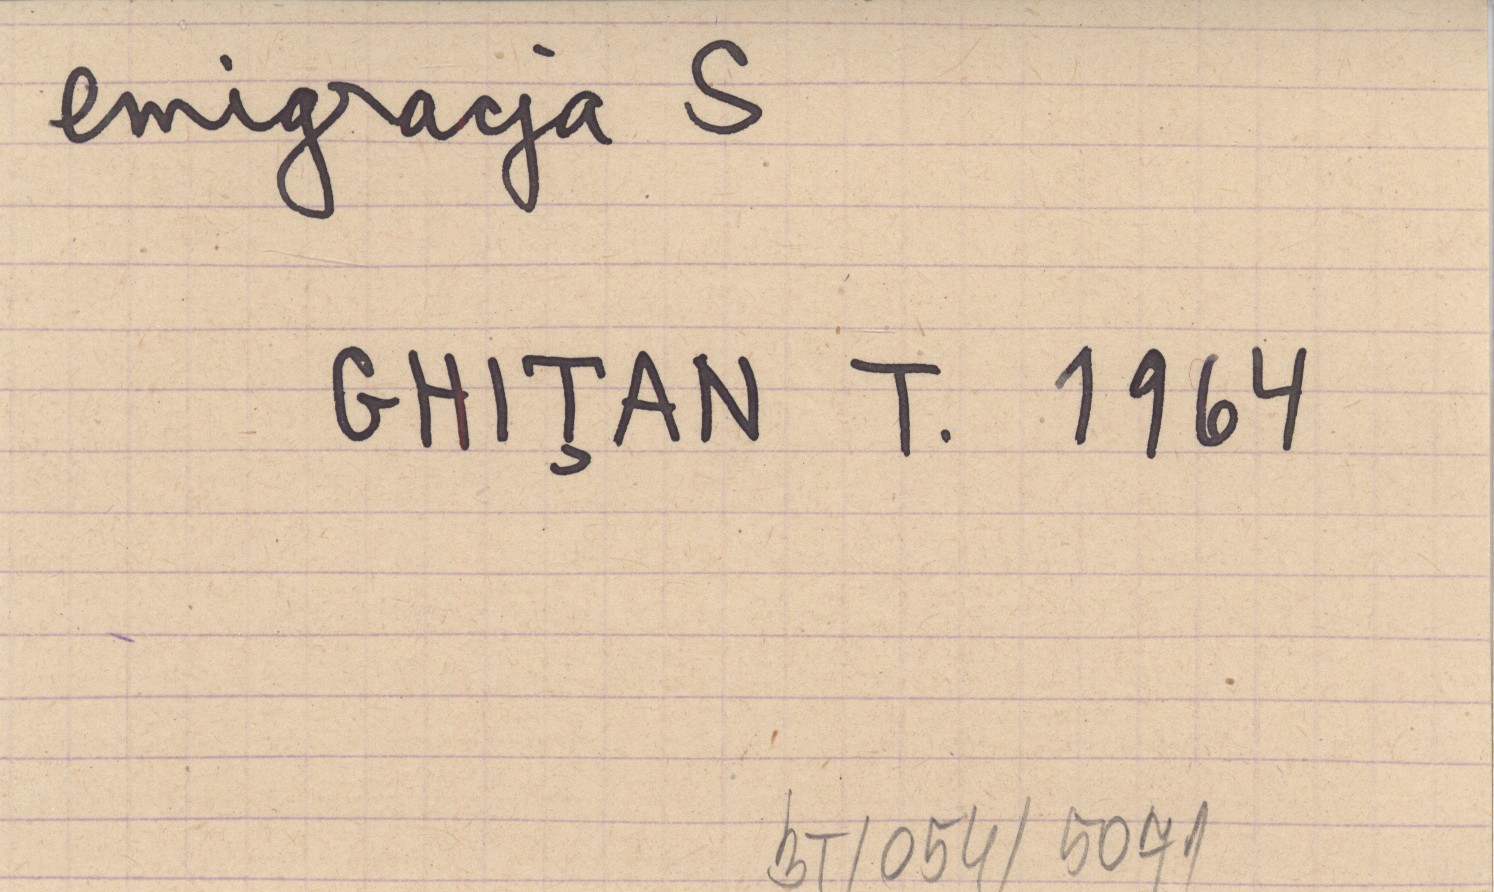 emigracja S
GHIŢAN T. 1964
BT/054/5071